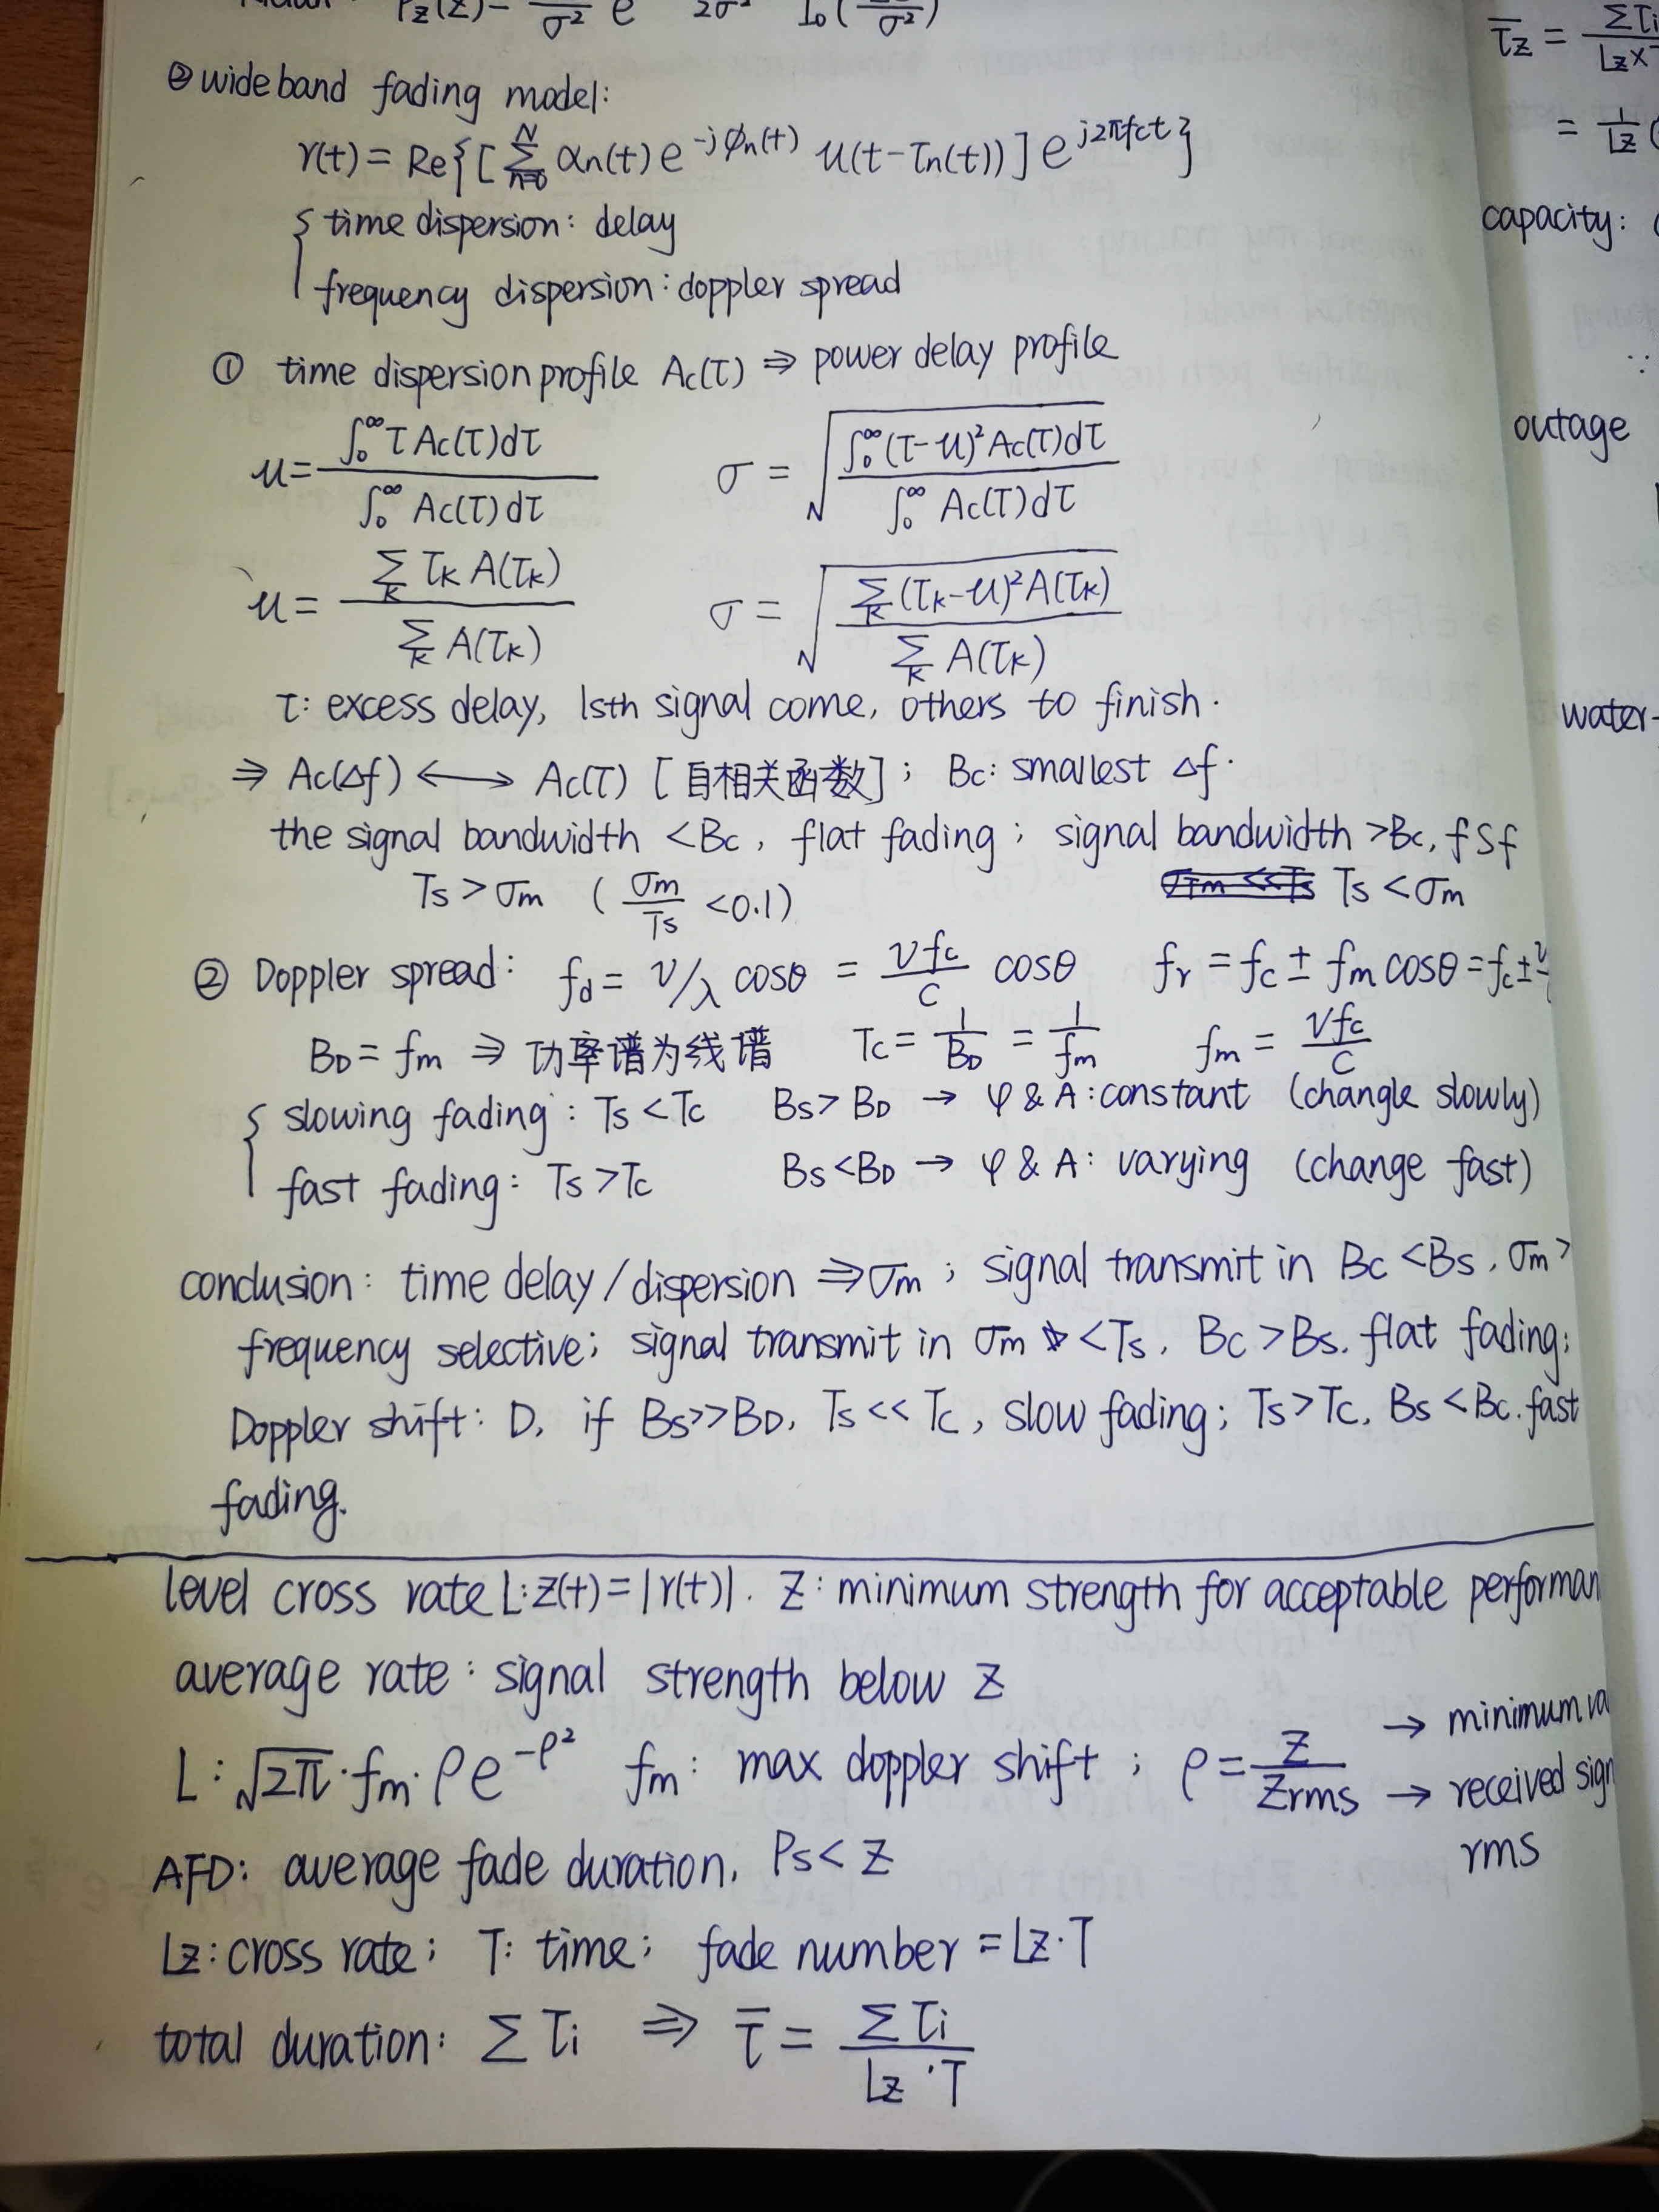 Pz(z)= — σ² e 2σ² I₀( σ²)
② wideband fading model:
r(t) = Re{[∑_{n=0}^{N} αn(t) e^{-jϕn(t)} u(t-τn(t))] e^{j2πfct}}
{ time dispersion: delay
frequency dispersion: doppler spread
① time dispersion profile Ac(τ) ⇒ power delay profile
u = ∫₀^∞ τ Ac(τ)dτ / ∫₀^∞ Ac(τ)dτ   σ = √(∫₀^∞ (τ-u)² Ac(τ)dτ / ∫₀^∞ Ac(τ)dτ)
u = ∑_k τk A(τk) / ∑_k A(τk)   σ = √(∑_k (τk-u)² A(τk) / ∑_k A(τk))
τ: excess delay, 1sth signal come, others to finish.
⇒ Ac(Δf) ⟷ Ac(τ) [自相关函数]; Bc: smallest Δf.
the signal bandwidth <Bc, flat fading; signal bandwidth >Bc, fsf
Ts > σm (σm/Ts <0.1)   Ts < σm
② Doppler spread: fd = v/λ cosθ = vfc/c cosθ   fr = fc ± fm cosθ = fc ±
BD = fm ⇒ 功率谱为线谱   Tc = 1/BD = 1/fm   fm = vfc/c
{ slowing fading: Ts < Tc   Bs > BD → φ & A: constant (changle slowly)
fast fading: Ts > Tc   Bs < BD → φ & A: varying (change fast)
conclusion: time delay/dispersion ⇒ σm; signal transmit in Bc < Bs, σm >
frequency selective; signal transmit in σm < Ts, Bc > Bs, flat fading;
Doppler shift: D, if Bs >> BD, Ts << Tc, slow fading; Ts > Tc, Bs < Bc. fast
fading.
level cross rate L: z(t) = |r(t)|. Z: minimum strength for acceptable performan
average rate: signal strength below Z
L: √2π · fm · ρe^{-ρ²}   fm: max doppler shift; ρ = Z/Zrms → minimum va
→ received sign
rms
AFD: average fade duration, Ps < Z
Lz: cross rate; T: time; fade number = Lz · T
total duration: ∑τi ⇒ τ̄ = ∑τi / Lz · T
τ̄z = ∑τi / Lz×T
= 1/Lz (
capacity: (
∵
outage
water-